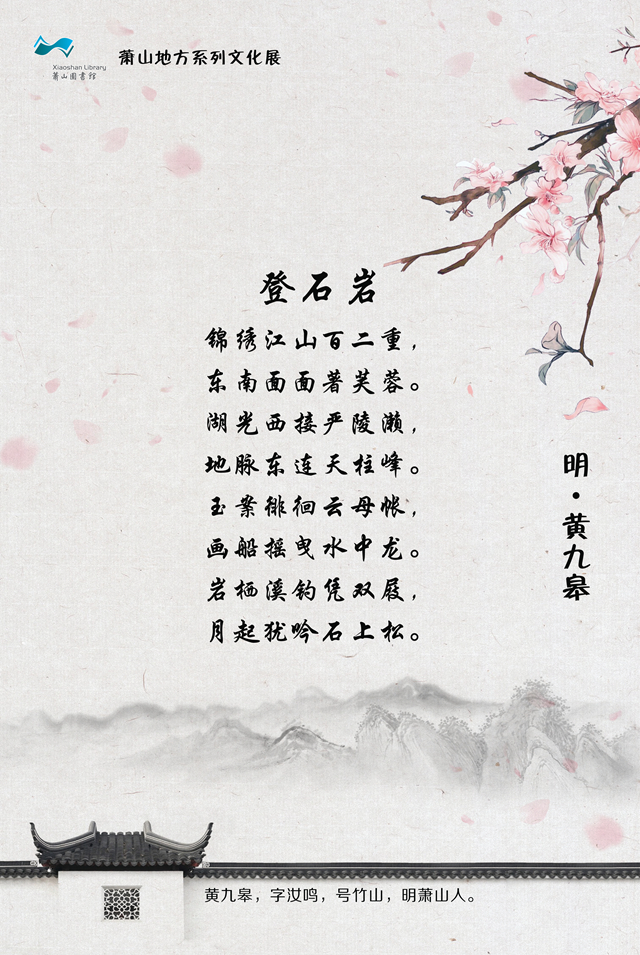 Xiaoshan Library
萧山圖書館
萧山地方系列文化展
登石岩
锦绣江山百二重，
东南面面著芙蓉。
湖光西接严陵濑，
地脉东连天柱峰。
玉案徘徊云母帐，
画船摇曳水中龙。
岩栖溪钓凭双屐，
月起犹吟石上松。
明·黄九皋
黄九皋，字汝鸣，号竹山，明萧山人。